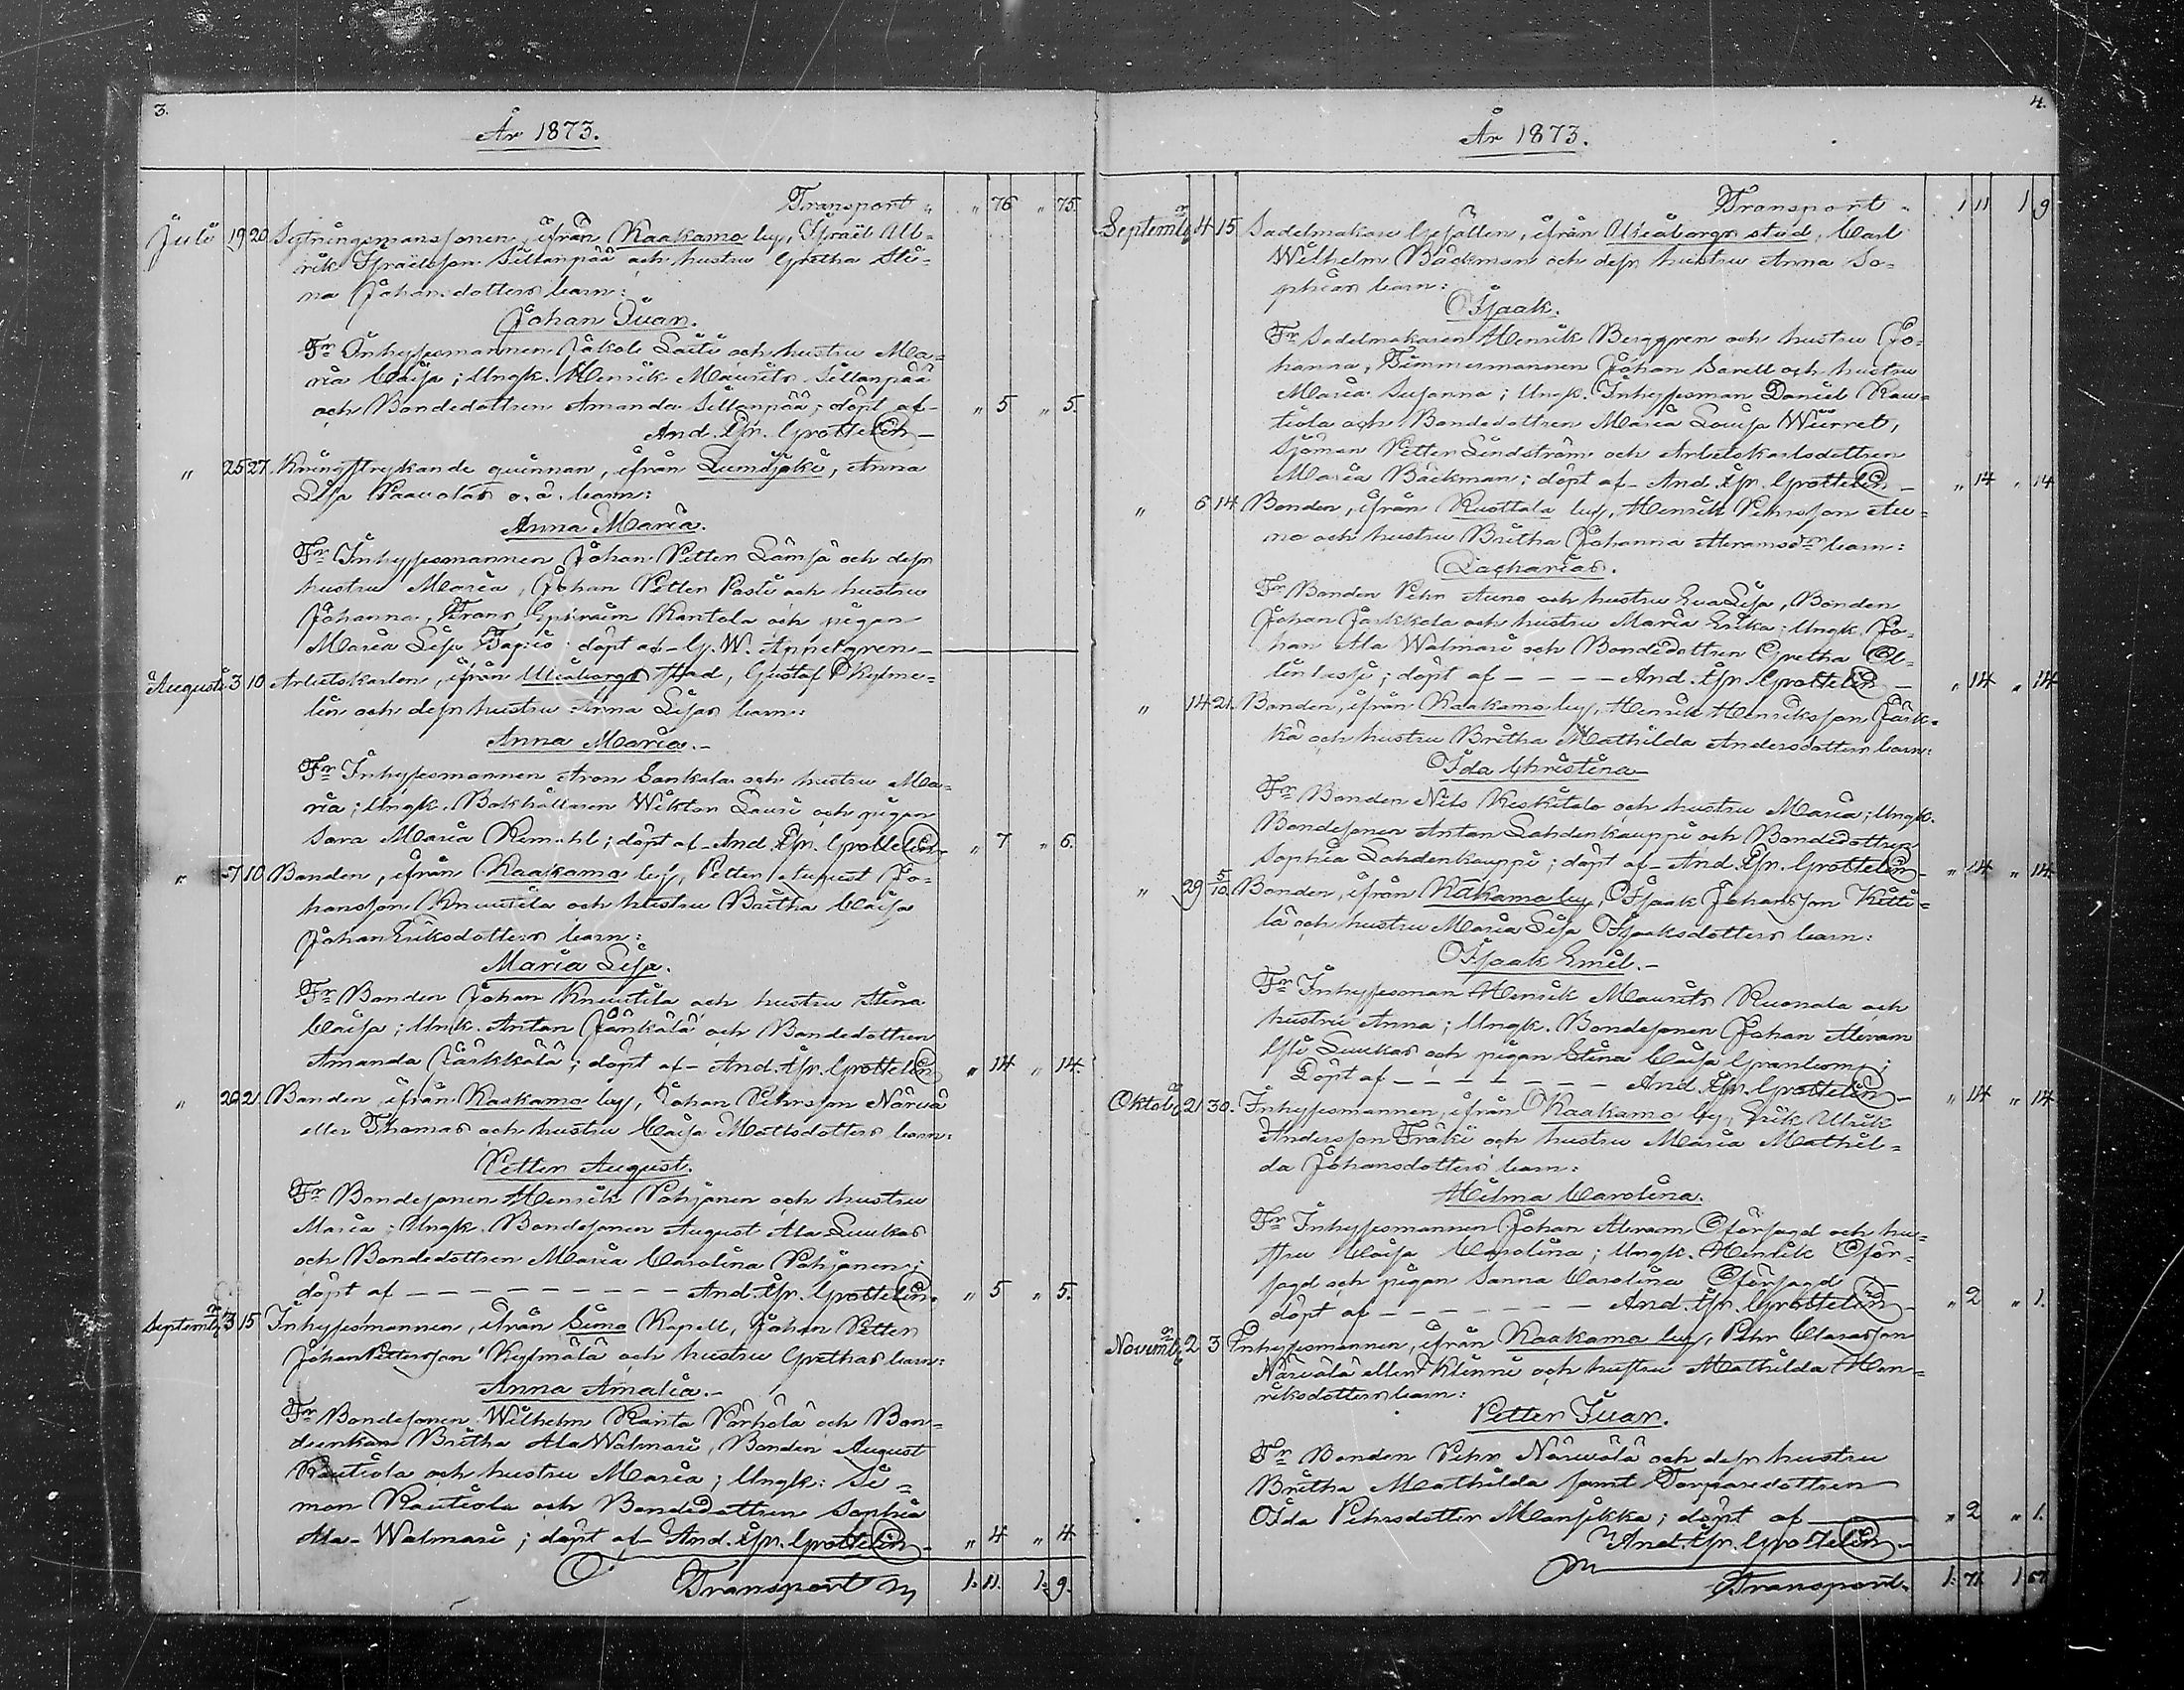 3.
År 1873.
Transport „ „ 76 „ 75.
Juli 19 20 Sytningsmanssonen, ifrån Kaakamo by, Isräel Ulb-
rik Isräelsson Sillanpää och hustru Gretha Sti-
na Johansdotters barn:
Johan Iivar.
Fr Inhysesmannen Jakob Laiti och hustru Ma-
ria Caisa; Ungk. Henrik Maurits Sillanpää
och Bondedottren Amanda Sillanpää; döpt af - „ 5 „ 5.
And. Gr. Grottelin
„ 25 27. Kringstrykande quinnan, ifrån Lumijoki, Anna
Lisa Paavolas o. ä. barn:
Anna Maria.
Fr Inhysesmannen Johan Petter Lämsä och dess
hustru Maria, Johan Petter Pasti och hustru
Johanna, Frans Ephraim Kantola och pigan
Maria Lisa Tapio döpt af - G. W. Appelgren -
Augusti 3 10 Arbetskarlen, ifrån Uleåborgs stad, Gustaf Kylme-
lin och dess hustru Anna Lisas barn:
Anna Maria. -
Fr Inhysesmannen Aron Sankala och hustru Ma-
ria; Ungk. Bokhållaren Wiktor Lauri och pigan
Sara Maria Remahl; döpt af - And. Gr. Grottelin „ 7 „ 6.
„ 7 10 Bonden, ifrån Kaakamo by, Petter August Jo-
hansson Knuutila och hustru Britha Caisa
Johan Eriksdotters barn:
Maria Lisa.
Fr Bonden Johan Knuutila och hustru Stina
Caisa; Unk. Antan Jänkälä och Bondedottren
Amanda Järkkälä; döpt af - And. Gr. Grottelin „ 14 „ 14.
„ 20 21. Bonden ifrån Kaakamo by, Johan Pehrsson Närvä
eller Thomas och hustru Caisa Mattsdotters barn:
Petter August.
Fr Bondesonen Henrik Pohjonen och hustru
Maria; Ungk. Bondesonen August Ala Luukas
och Bondedottren Maria Carolina Pohjonen;
döpt af - - - - - - - - - And. Gr. Grottelin. „ 5 „ 5.
Septembr 3 15 Inhysesmannen, ifrån Simo Kapell, Johan Petter
Johan Pettersson Kylmälä och hustru Grethas barn:
Anna Amalia. -
Fr Bondesonen Wilhelm Ranta Pörhölä och Bon-
deenkan Britha Ala Walmari, Bonden August
Rautiola och hustru Maria; Ungk: Si-
mon Rautiola och Bondedottren Sophia
Ala-Walmari; döpt af - And. Gr. Grottelin - „ 4 „ 4.
Transport 1: 11. 1: 9.
4.
År 1873.
Transport „ 1 11 1 9
Septembr 4 15 Sadelmakare Gesällen, ifrån Uleåborgs stad, Carl
Wilhelm Bäckman och dess hustru Anna So-
phias barn:
Isaak.
Fr Sadelmakaren Henrik Berggren och hustru Jo-
hanna, Timmermannen Johan Sarell och hustru
Maria Susanna; Ungk. Inhysesman Daniel Rau-
tiola och Bondedottren Maria Lovisa Wiirret,
Sjöman Petter Lindström och Arbetskarlsdottren
Maria Bäckman; döpt af - And. Gr. Grottelin - „ 14 „ 14
„ 6 14 Bonden, ifrån Ruottala by, Henrik Pehrsson Au-
no och hustru Britha Johanna Abramsdrs barn:
Zacharias.
Fr Bonden Pehr Auno och hustru Eva Lisa, Bonden
Johan Jarkkola och hustru Maria Erika; Ungk. Jo-
han Ala Walmari och Bondedottren Gretha Ol-
lin ; döpt af - - - - And. Gr. Grottelin - „ 14 „ 14
„ 14 21. Bonden, ifrån Kaakamo by, Henrik Henriksson Järk-
kä och hustru Britha Mathilda Andersdotters barn:
Ida Christina
Fr Bonden Nils Keskitalo och hustru Maria; Ungk.
Bondesonen Antan Lahdenkauppi och Bondedottren
Sophia Lahdenkauppi; döpt af - And. Gr. Grottelin - „ 14 „ 14
„ 29 5/10. Bonden, ifrån Kakamo by, Isaak Johansson Kitti-
lä och hustru Maria Lisa Isaaksdotters barn:
Isaak Emil. -
Fr Inhysesman Henrik Maurits Ruonala och
hustru Anna; Ungk. Bondesonen Johan Abram
Yli Luukas och pigan Stina Caisa Granberg;
Döpt af - - - - - - - And. Gr. Grottelin - „ 14 „ 14
Oktobr 21 30. Inhysesmannen, ifrån Kaakamo by, Erik Ulrik
Andersson Träki och hustru Maria Mathil-
da Johansdotters barn:
Hilma Carolina.
Fr Inhysesmannen Johan Abram Oförsagd och hu-
stru Caisa Carolina; Ungk. Henrik Oför-
sagd och pigan Sanna Carolina Oförsagd
döpt af - - - - - - - And. Gr. Grottelin - „ 2 „ 1.
Novembr 2 3 Inhysesmannen, ifrån Kaakamo by, Pehr Clarasson
Närvälä eller Klinni och hustru Mathilda Hen-
riksdotters barn:
Petter Iivar.
Fr Bonden Pehr Närvälä och dess hustru
Britha Mathilda samt Torparedottren
Ida Pehrsdotter Mansikka; döpt af „ 2 „ 1.
And. Gr. Grottelin -
Transport. 1: 71. 1 67